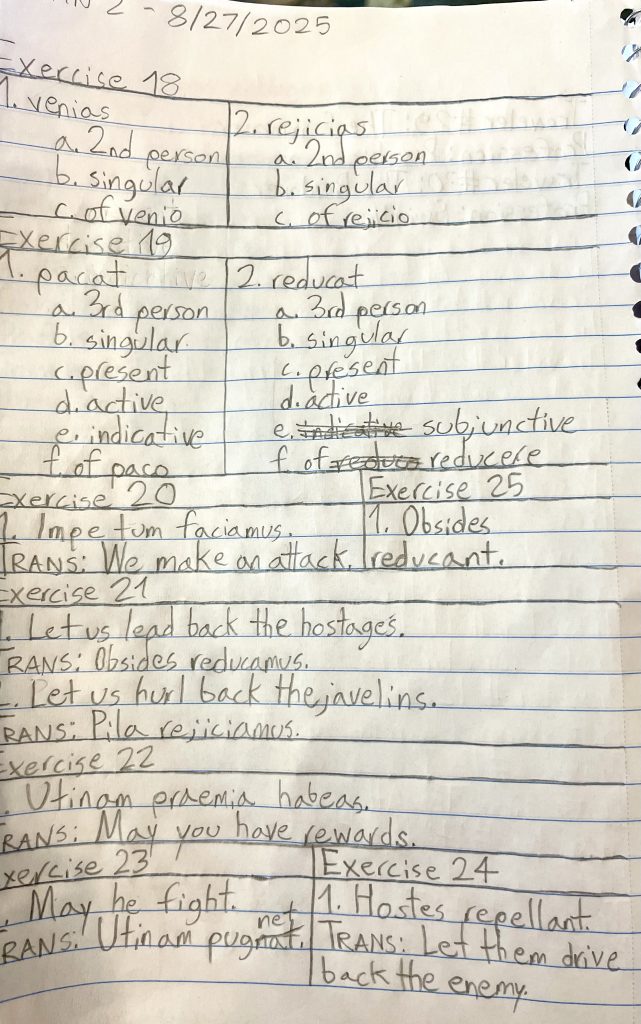 2 - 8/27/2025
Exercise 18
1. venias
a. 2nd person
b. singular
c. of venio
2. rejicias
a. 2nd person
b. singular
c. of rejicio
Exercise 19
1. pacat
a. 3rd person
b. singular
c. present
d. active
e. indicative
f. of paco
2. reducat
a. 3rd person
b. singular
c. present
d. active
e. indicative subjunctive
f. of reduco reducere
Exercise 20
1. Impetum faciamus.
TRANS: We make an attack.
Exercise 25
1. Obsides
reducant.
Exercise 21
1. Let us lead back the hostages.
TRANS: Obsides reducamus.
2. Let us hurl back the javelins.
TRANS: Pila rejiciamus.
Exercise 22
1. Utinam praemia habeas.
TRANS: May you have rewards.
Exercise 23
1. May he fight.
net
TRANS: Utinam pugnat.
Exercise 24
1. Hostes repellant.
TRANS: Let them drive
back the enemy.